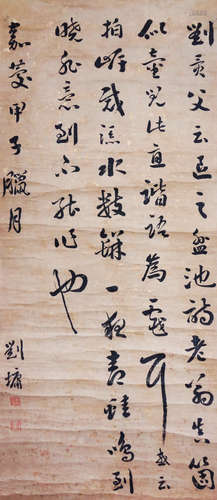 劉貢父云退之盆池詩老翁真箇
似童兒此直諧語為戲耳
拍岸纔添水數缾一夜青蛙鳴到
曉非意到不能作也
嘉慶甲子臘月
劉墉